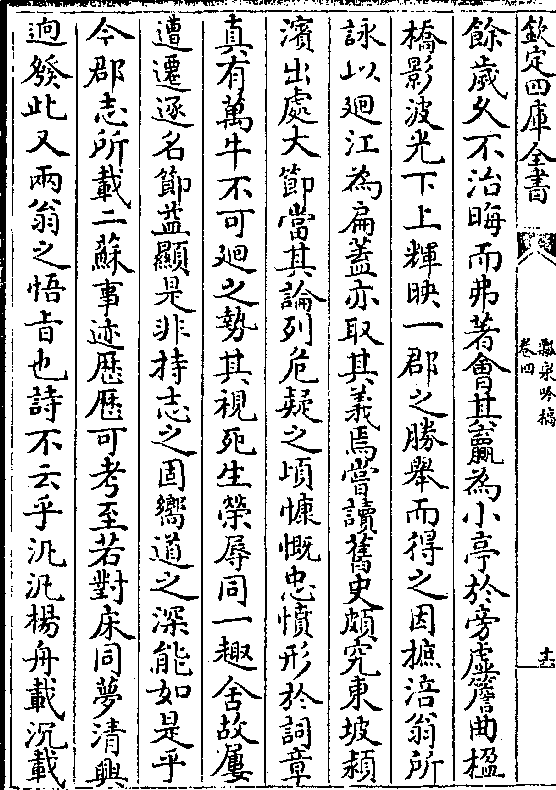 欽定四庫全書
瓢泉吟稿
卷四
十五
餘歲久不治晦而弗著會其贏為小亭於旁虛簷曲楹
橋影波光下上輝映一郡之勝舉而得之因摭涪翁所
詠以廻江為扁葢亦取其義焉嘗讀舊史頗究東坡潁
濱出處大節當其論列危疑之頃慷慨忠憤形於詞章
真有萬牛不可廻之勢其視死生榮辱同一趣舍故屢
遭遷逐名節益顯是非持志之固嚮道之深能如是乎
今郡志所載二蘇事迹歴歴可考至若對床同夢清興
逈發此又兩翁之悟㫖也詩不云乎汎汎楊舟載沉載